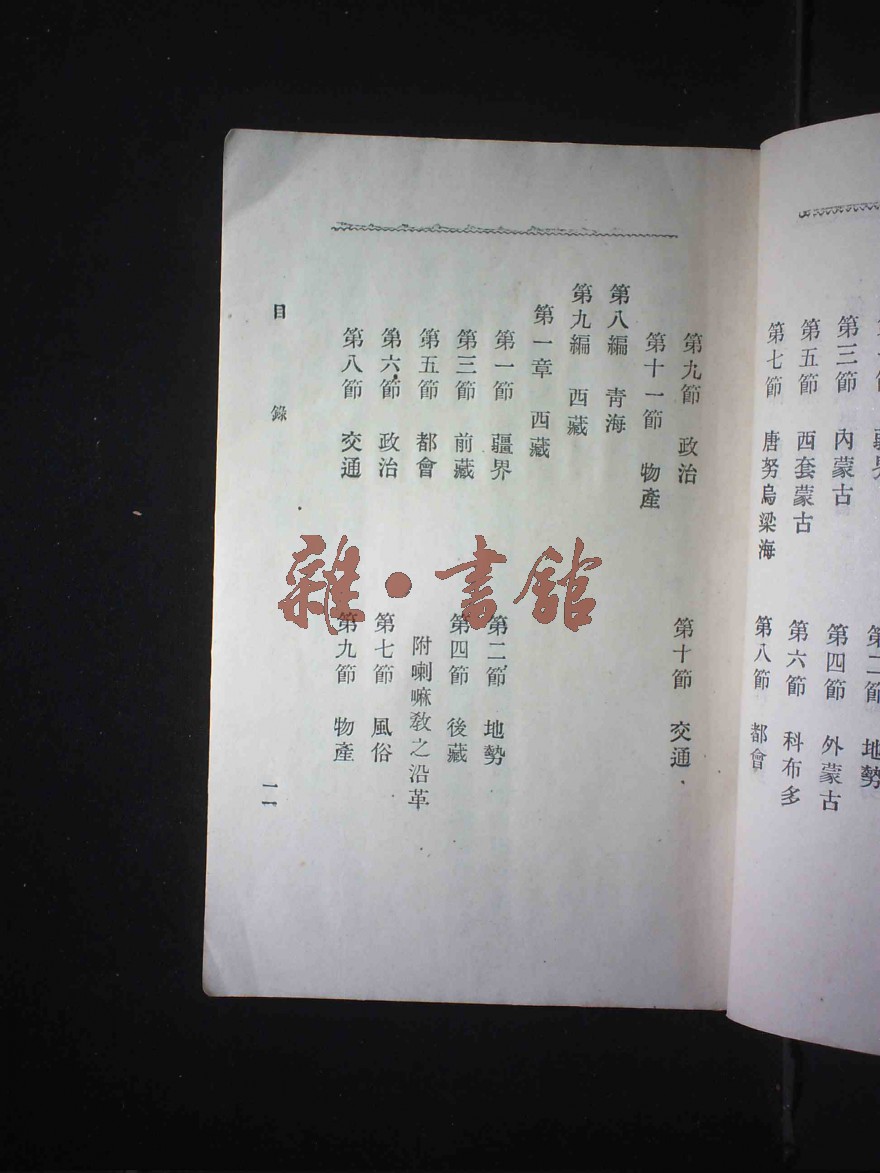 第二節 地勢
第三節 內蒙古
第四節 外蒙古
第五節 西套蒙古
第六節 科布多
第七節 唐努烏梁海
第八節 都會
第九節 政治
第十節 交通
第十一節 物產
第八編 青海
第九編 西藏
第一章 西藏
第一節 疆界
第二節 地勢
第三節 前藏
第四節 後藏
第五節 都會
附喇嘛教之沿革
第六節 政治
第七節 風俗
第八節 交通
第九節 物產
目錄
一一
雜·書館